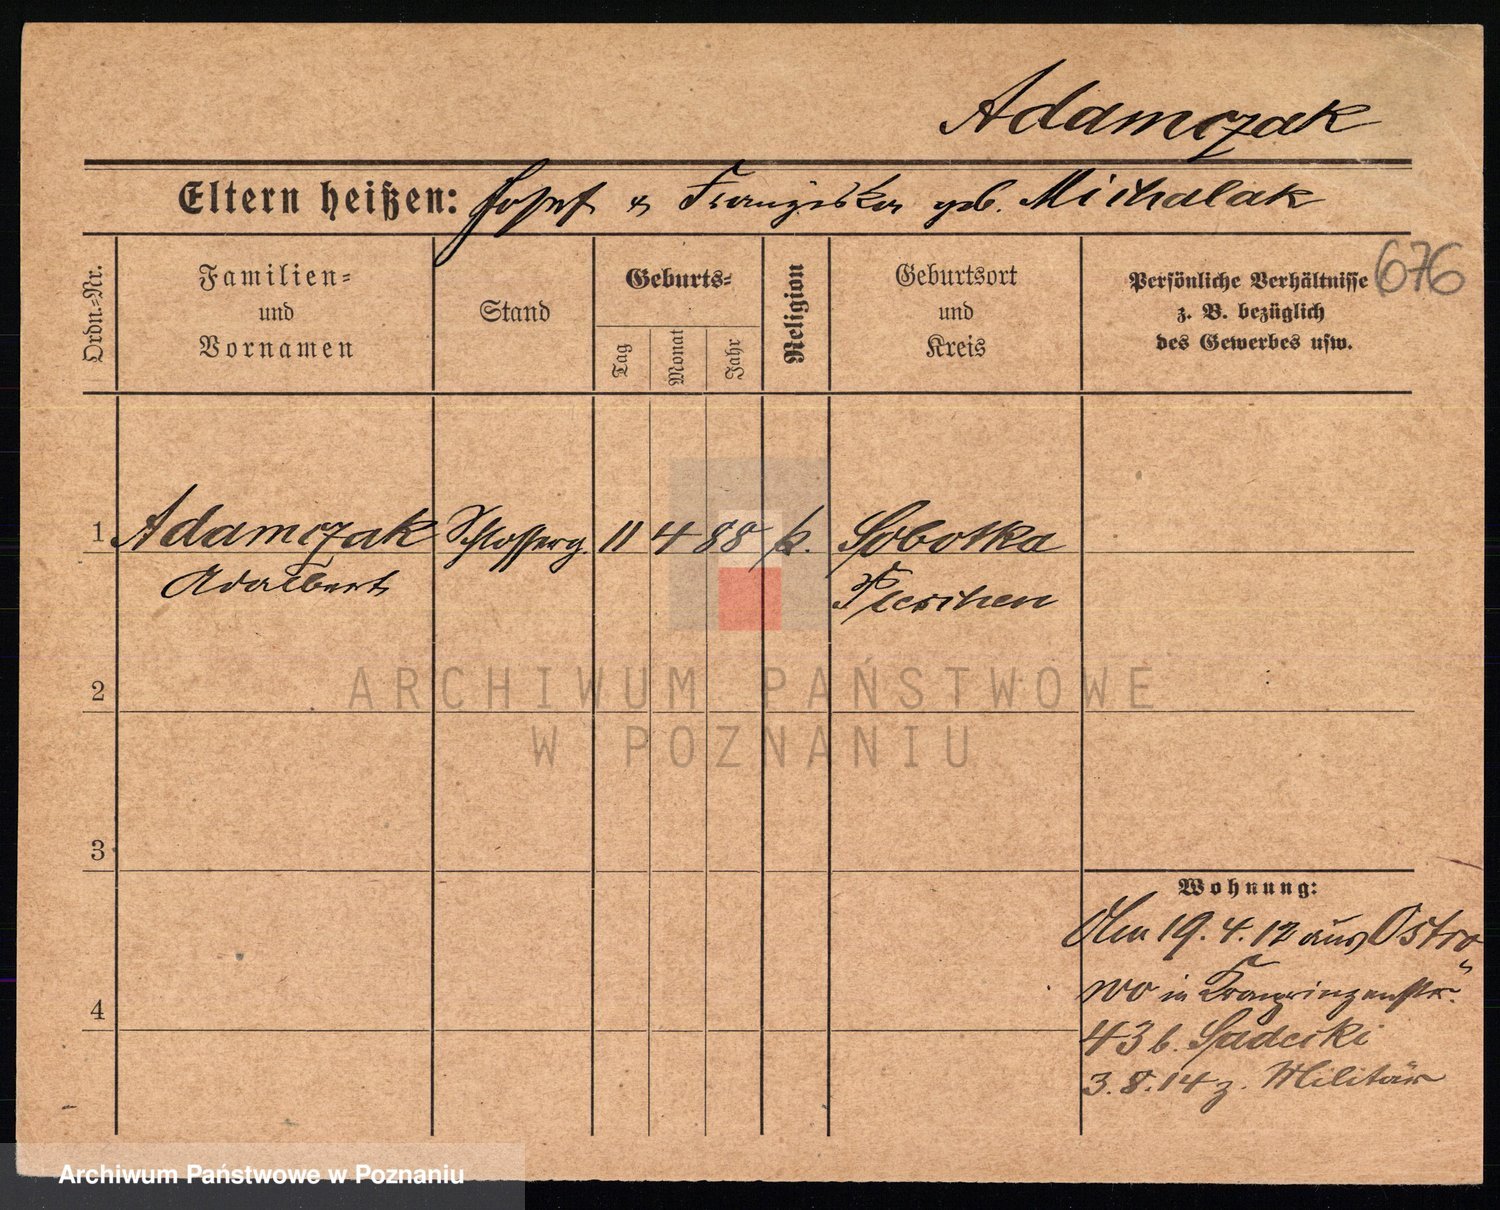 Adamczak
Eltern heißen: Josef & Franziska geb. Michalak
676
Ordn.-Nr.
Familien-
und
Vornamen
Stand
Geburts-
Tag
Monat
Jahr
Religion
Geburtsort
und
Kreis
Persönliche Verhältnisse
z. B. bezüglich
des Gewerbes usw.
1 Adamczak Schlosserg. 11 4 88 k. Sobotka
Adalbert Pleschen
2
ARCHIWUM PAŃSTWOWE
W POZNANIU
3
Wohnung:
Am 19.4.12 aus Ostro
wo in Kronprinzenstr.
4
43 b. Sadecki
3.8.14 z. Militär
Archiwum Państwowe w Poznaniu